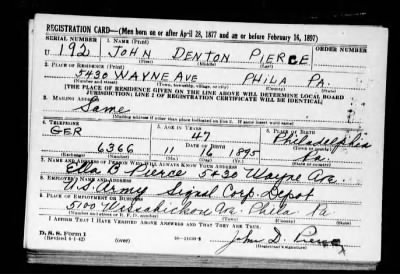 REGISTRATION CARD—(Men born on or after April 28, 1877 and on or before February 16, 1897)
SERIAL NUMBER 1. NAME (Print)
U 192 JOHN DENTON PIERCE
(First) (Middle) (Last)
2. PLACE OF RESIDENCE (Print)
5430 WAYNE AVE PHILA PA.
(Number and street) (Town, township, village, or city) (County) (State)
[THE PLACE OF RESIDENCE GIVEN ON THE LINE ABOVE WILL DETERMINE LOCAL BOARD
JURISDICTION; LINE 2 OF REGISTRATION CERTIFICATE WILL BE IDENTICAL]
3. MAILING ADDRESS
Same
[Mailing address if other than place indicated on line 2. If same insert word same]
4. TELEPHONE 5. AGE IN YEARS 6. PLACE OF BIRTH
GER 47 Philadelphia
DATE OF BIRTH
6366 11 16 1895 Pa.
(Exchange) (Number) (Mo.) (Day) (Yr.) (State or country)
7. NAME AND ADDRESS OF PERSON WHO WILL ALWAYS KNOW YOUR ADDRESS
Ella B Pierce 5430 Wayne Ave.
8. EMPLOYER'S NAME AND ADDRESS
U.S. Army Signal Corp. Depot
9. PLACE OF EMPLOYMENT OR BUSINESS
5100 Wissahickon Av. Phila Pa
(Number and street or R. F. D. number) (Town) (County) (State)
I AFFIRM THAT I HAVE VERIFIED ABOVE ANSWERS AND THAT THEY ARE TRUE.
D. S. S. Form 1
(Revised 4-1-42) (over)
John D. Pierce
(Registrant's signature)